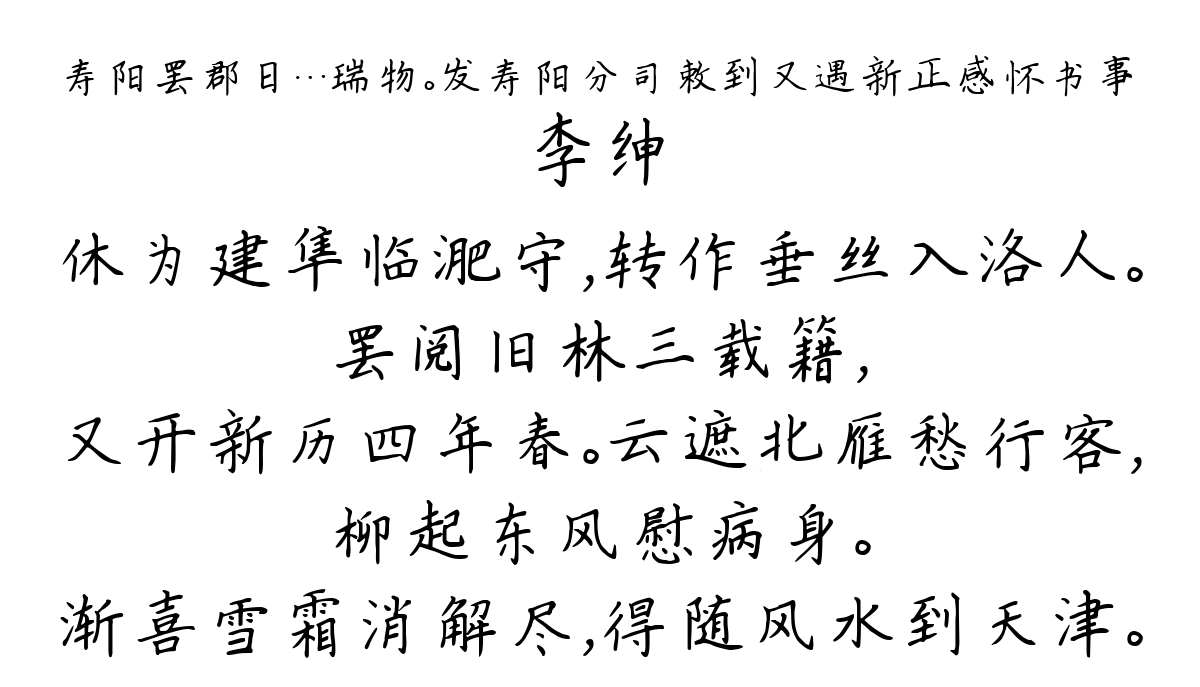 寿阳罢郡日…瑞物。发寿阳分司敕到又遇新正感怀书事
李绅
休为建隼临淝守,转作垂丝入洛人。
罢阅旧林三载籍,
又开新历四年春。云遮北雁愁行客,
柳起东风慰病身。
渐喜雪霜消解尽,得随风水到天津。